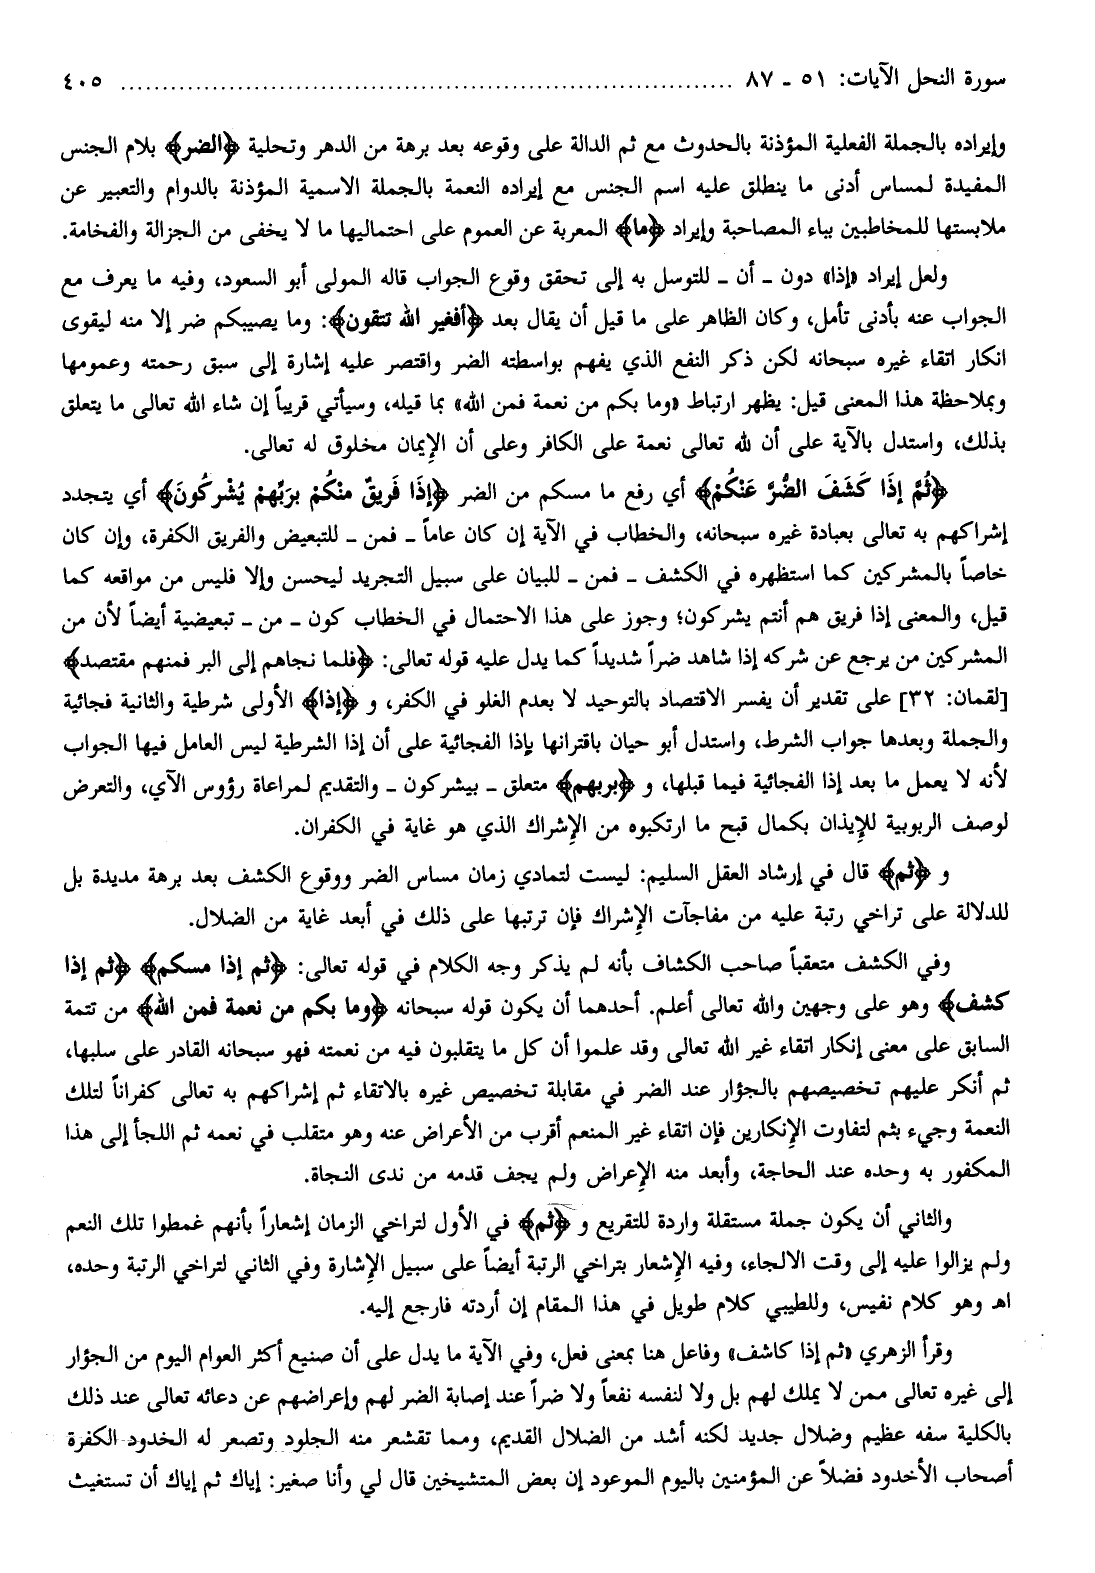 سورة النحل الآيات: ٥١ ـ ٨٧ ........................................................................ ٤٠٥
وإيراده بالجملة الفعلية المؤذنة بالحدوث مع ثم الدالة على وقوعه بعد برهة من الدهر وتحلية ﴿الضر﴾ بلام الجنس
المفيدة لمساس أدنى ما ينطلق عليه اسم الجنس مع إيراده النعمة بالجملة الاسمية المؤذنة بالدوام والتعبير عن
ملابستها للمخاطبين بباء المصاحبة وإيراد ﴿ما﴾ المعربة عن العموم على احتماليها ما لا يخفى من الجزالة والفخامة.
ولعل إيراد «إذا» دون ـ أن ـ للتوسل به إلى تحقق وقوع الجواب قاله المولى أبو السعود، وفيه ما يعرف مع
الجواب عنه بأدنى تأمل، وكان الظاهر على ما قيل أن يقال بعد ﴿أفغير الله تتقون﴾: وما يصيبكم ضر إلا منه ليقوى
انكار اتقاء غيره سبحانه لكن ذكر النفع الذي يفهم بواسطته الضر واقتصر عليه إشارة إلى سبق رحمته وعمومها
وبملاحظة هذا المعنى قيل: يظهر ارتباط «وما بكم من نعمة فمن الله» بما قيله، وسيأتي قريباً إن شاء الله تعالى ما يتعلق
بذلك، واستدل بالآية على أن لله تعالى نعمة على الكافر وعلى أن الإيمان مخلوق له تعالى.
﴿ثُمَّ إذَا كَشَفَ الضُّرَّ عَنْكُمْ﴾ أي رفع ما مسكم من الضر ﴿إذَا فَريقٌ منْكُمْ برَبِّهمْ يُشْركُونَ﴾ أي يتجدد
إشراكهم به تعالى بعبادة غيره سبحانه، والخطاب في الآية إن كان عاماً ـ فمن ـ للتبعيض والفريق الكفرة، وإن كان
خاصاً بالمشركين كما استظهره في الكشف ـ فمن ـ للبيان على سبيل التجريد ليحسن وإلا فليس من مواقعه كما
قيل، والمعنى إذا فريق هم أنتم يشركون؛ وجوز على هذا الاحتمال في الخطاب كون ـ من ـ تبعيضية أيضاً لأن من
المشركين من يرجع عن شركه إذا شاهد ضراً شديداً كما يدل عليه قوله تعالى: ﴿فلما نجاهم إلى البر فمنهم مقتصد﴾
[لقمان: ٣٢] على تقدير أن يفسر الاقتصاد بالتوحيد لا بعدم الغلو في الكفر، و ﴿إذا﴾ الأولى شرطية والثانية فجائية
والجملة وبعدها جواب الشرط، واستدل أبو حيان باقترانها بإذا الفجائية على أن إذا الشرطية ليس العامل فيها الجواب
لأنه لا يعمل ما بعد إذا الفجائية فيما قبلها، و ﴿بربهم﴾ متعلق ـ بيشركون ـ والتقديم لمراعاة رؤوس الآي، والتعرض
لوصف الربوبية للإيذان بكمال قبح ما ارتكبوه من الإشراك الذي هو غاية في الكفران.
و ﴿ثم﴾ قال في إرشاد العقل السليم: ليست لتمادي زمان مساس الضر ووقوع الكشف بعد برهة مديدة بل
للدلالة على تراخي رتبة عليه من مفاجآت الإشراك فإن ترتبها على ذلك في أبعد غاية من الضلال.
وفي الكشف متعقباً صاحب الكشاف بأنه لم يذكر وجه الكلام في قوله تعالى: ﴿ثم إذا مسكم﴾ ﴿ثم إذا
كشف﴾ وهو على وجهين والله تعالى أعلم. أحدهما أن يكون قوله سبحانه ﴿وما بكم من نعمة فمن الله﴾ من تتمة
السابق على معنى إنكار اتقاء غير الله تعالى وقد علموا أن كل ما يتقلبون فيه من نعمته فهو سبحانه القادر على سلبها،
ثم أنكر عليهم تخصيصهم بالجؤار عند الضر في مقابلة تخصيص غيره بالاتقاء ثم إشراكهم به تعالى كفراناً لتلك
النعمة وجيء بثم لتفاوت الإنكارين فإن اتقاء غير المنعم أقرب من الأعراض عنه وهو متقلب في نعمه ثم اللجأ إلى هذا
المكفور به وحده عند الحاجة، وأبعد منه الإعراض ولم يجف قدمه من ندى النجاة.
والثاني أن يكون جملة مستقلة واردة للتقريع و ﴿ثم﴾ في الأول لتراخي الزمان إشعاراً بأنهم غمطوا تلك النعم
ولم يزالوا عليه إلى وقت الالجاء، وفيه الإشعار بتراخي الرتبة أيضاً على سبيل الإشارة وفي الثاني لتراخي الرتبة وحده،
اهـ وهو كلام نفيس، وللطيبي كلام طويل في هذا المقام إن أردته فارجع إليه.
وقرأ الزهري «ثم إذا كاشف» وفاعل هنا بمعنى فعل، وفي الآية ما يدل على أن صنيع أكثر العوام اليوم من الجؤار
إلى غيره تعالى ممن لا يملك لهم بل ولا لنفسه نفعاً ولا ضراً عند إصابة الضر لهم وإعراضهم عن دعائه تعالى عند ذلك
بالكلية سفه عظيم وضلال جديد لكنه أشد من الضلال القديم، ومما تقشعر منه الجلود وتصعر له الخدود الكفرة
أصحاب الأخدود فضلاً عن المؤمنين باليوم الموعود إن بعض المتشيخين قال لي وأنا صغير: إياك ثم إياك أن تستغيث